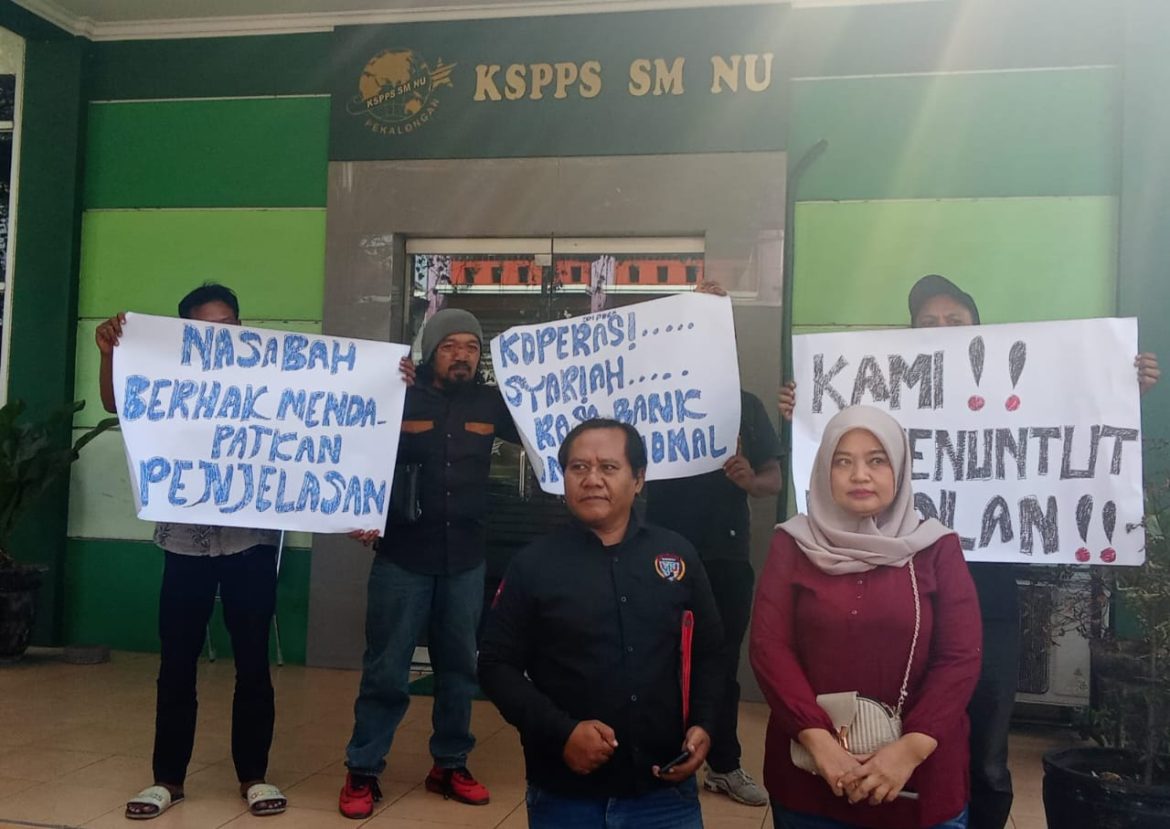 KSPPS SM NU
KSPPS SM NU
PEKALONGAN
NASABAH
BERHAK MENDA-
PATKAN
PENJELASAN
KOPERASI.....
SYARIAH.....
RASA BANK
KAMI!!
ENUNTUT
LAN!!